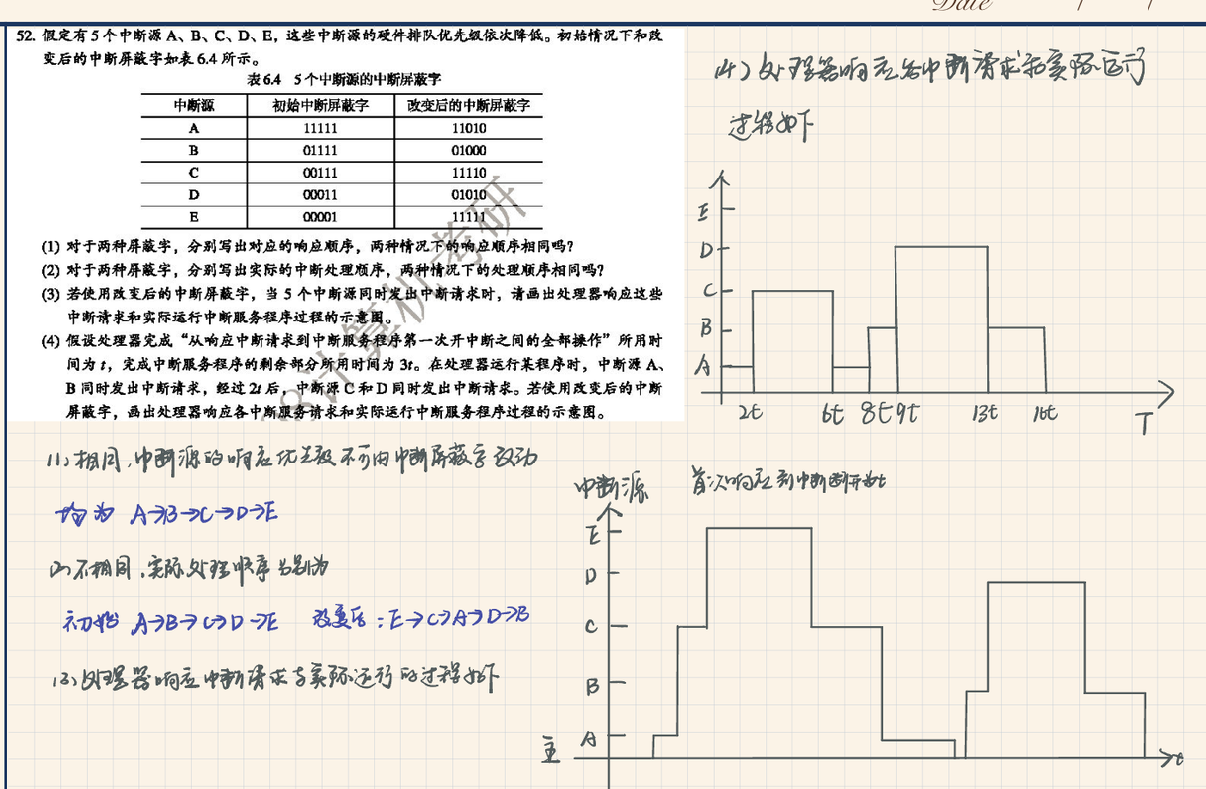 Date / /
52. 假定有 5 个中断源 A、B、C、D、E，这些中断源的硬件排队优先级依次降低。初始情况下和改
变后的中断屏蔽字如表 6.4 所示。
表6.4 5个中断源的中断屏蔽字
中断源 初始中断屏蔽字 改变后的中断屏蔽字
A 11111 11010
B 01111 01000
C 00111 11110
D 00011 01010
E 00001 11111
(1) 对于两种屏蔽字，分别写出对应的响应顺序，两种情况下的响应顺序相同吗？
(2) 对于两种屏蔽字，分别写出实际的中断处理顺序，两种情况下的处理顺序相同吗？
(3) 若使用改变后的中断屏蔽字，当 5 个中断源同时发出中断请求时，请画出处理器响应这些
中断请求和实际运行中断服务程序过程的示意图。
(4) 假设处理器完成“从响应中断请求到中断服务程序第一次开中断之间的全部操作”所用时
间为 t，完成中断服务程序的剩余部分所用时间为 3t。在处理器运行某程序时，中断源 A、
B 同时发出中断请求，经过 2t 后，中断源 C 和 D 同时发出中断请求。若使用改变后的中断
屏蔽字，画出处理器响应各中断服务请求和实际运行中断服务程序过程的示意图。
计算机考研
(1) 相同，中断源的响应优先级不可由中断屏蔽字改动
均为 A→B→C→D→E
(2) 不相同，实际处理顺序分别为
初始 A→B→C→D→E 改变后：E→C→A→D→B
(3) 处理器响应中断请求与实际运行的过程如下
(4) 处理器响应各中断请求和实际运行
过程如下
E
D
C
B
A
2t 6t 8t 9t 13t 16t T
中断源 首次响应到中断断开为t
E
D
C
B
A
主 t